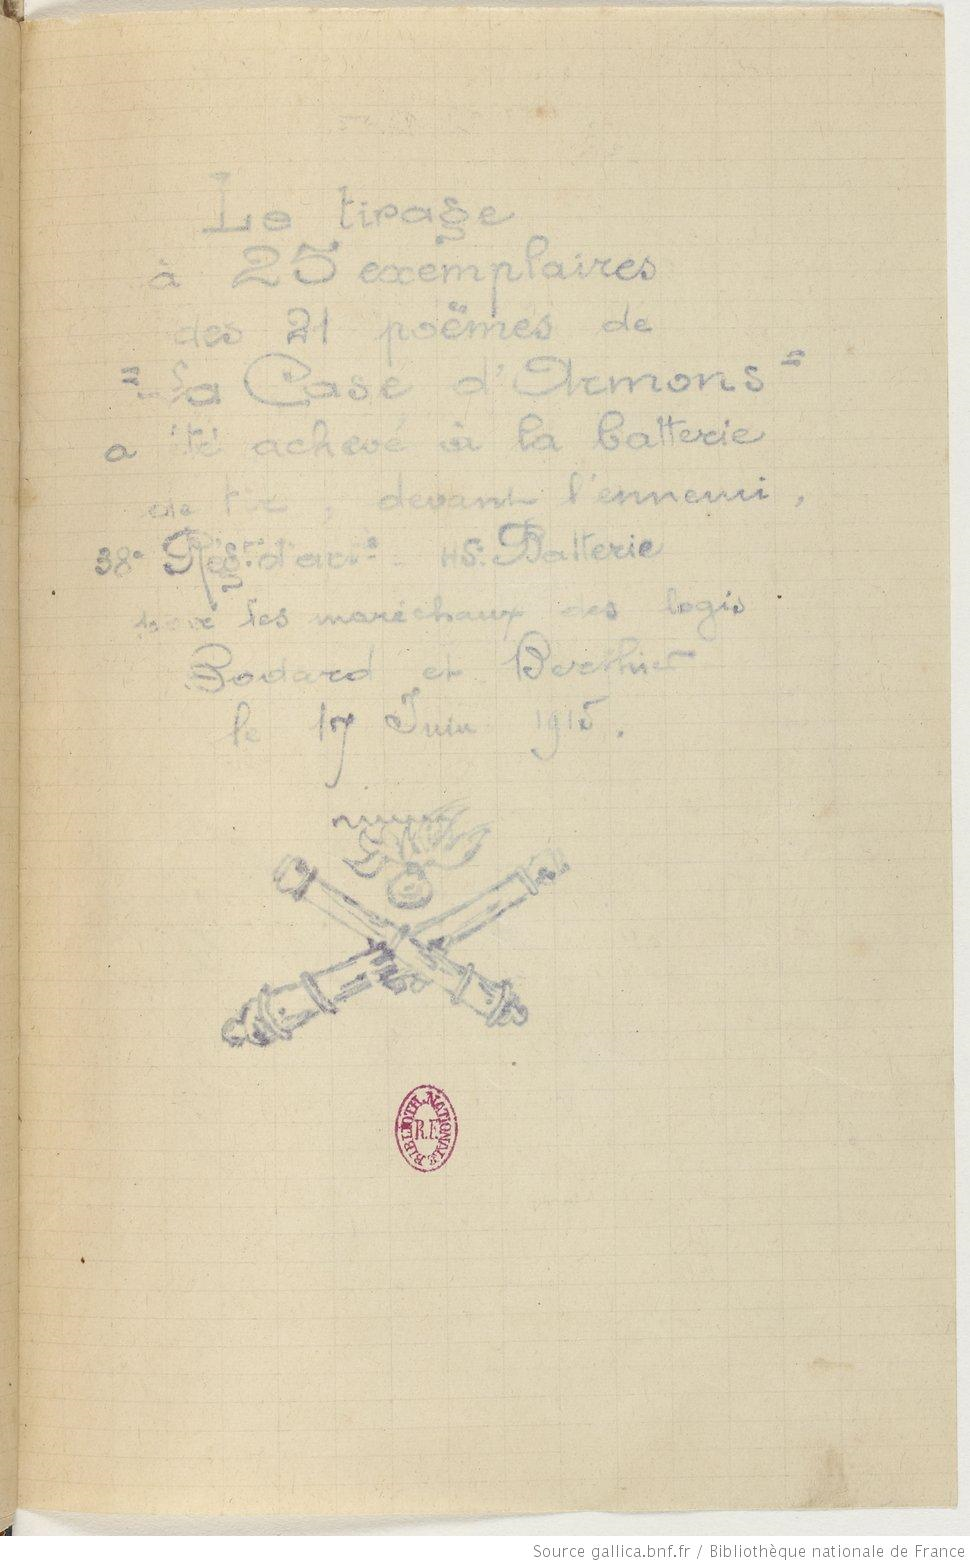 Le tirage
à 25 exemplaires
des 21 poëmes de
"La Case d'Armons"
a été achevé à la batterie
de tir, devant l'ennemi,
38e Régt d'artie - 45e Batterie
par les maréchaux des logis
Bodard et Berthier
le 17 Juin 1915.
BIBLIOTH. NATIONALE
R.F.
Source gallica.bnf.fr / Bibliothèque nationale de France